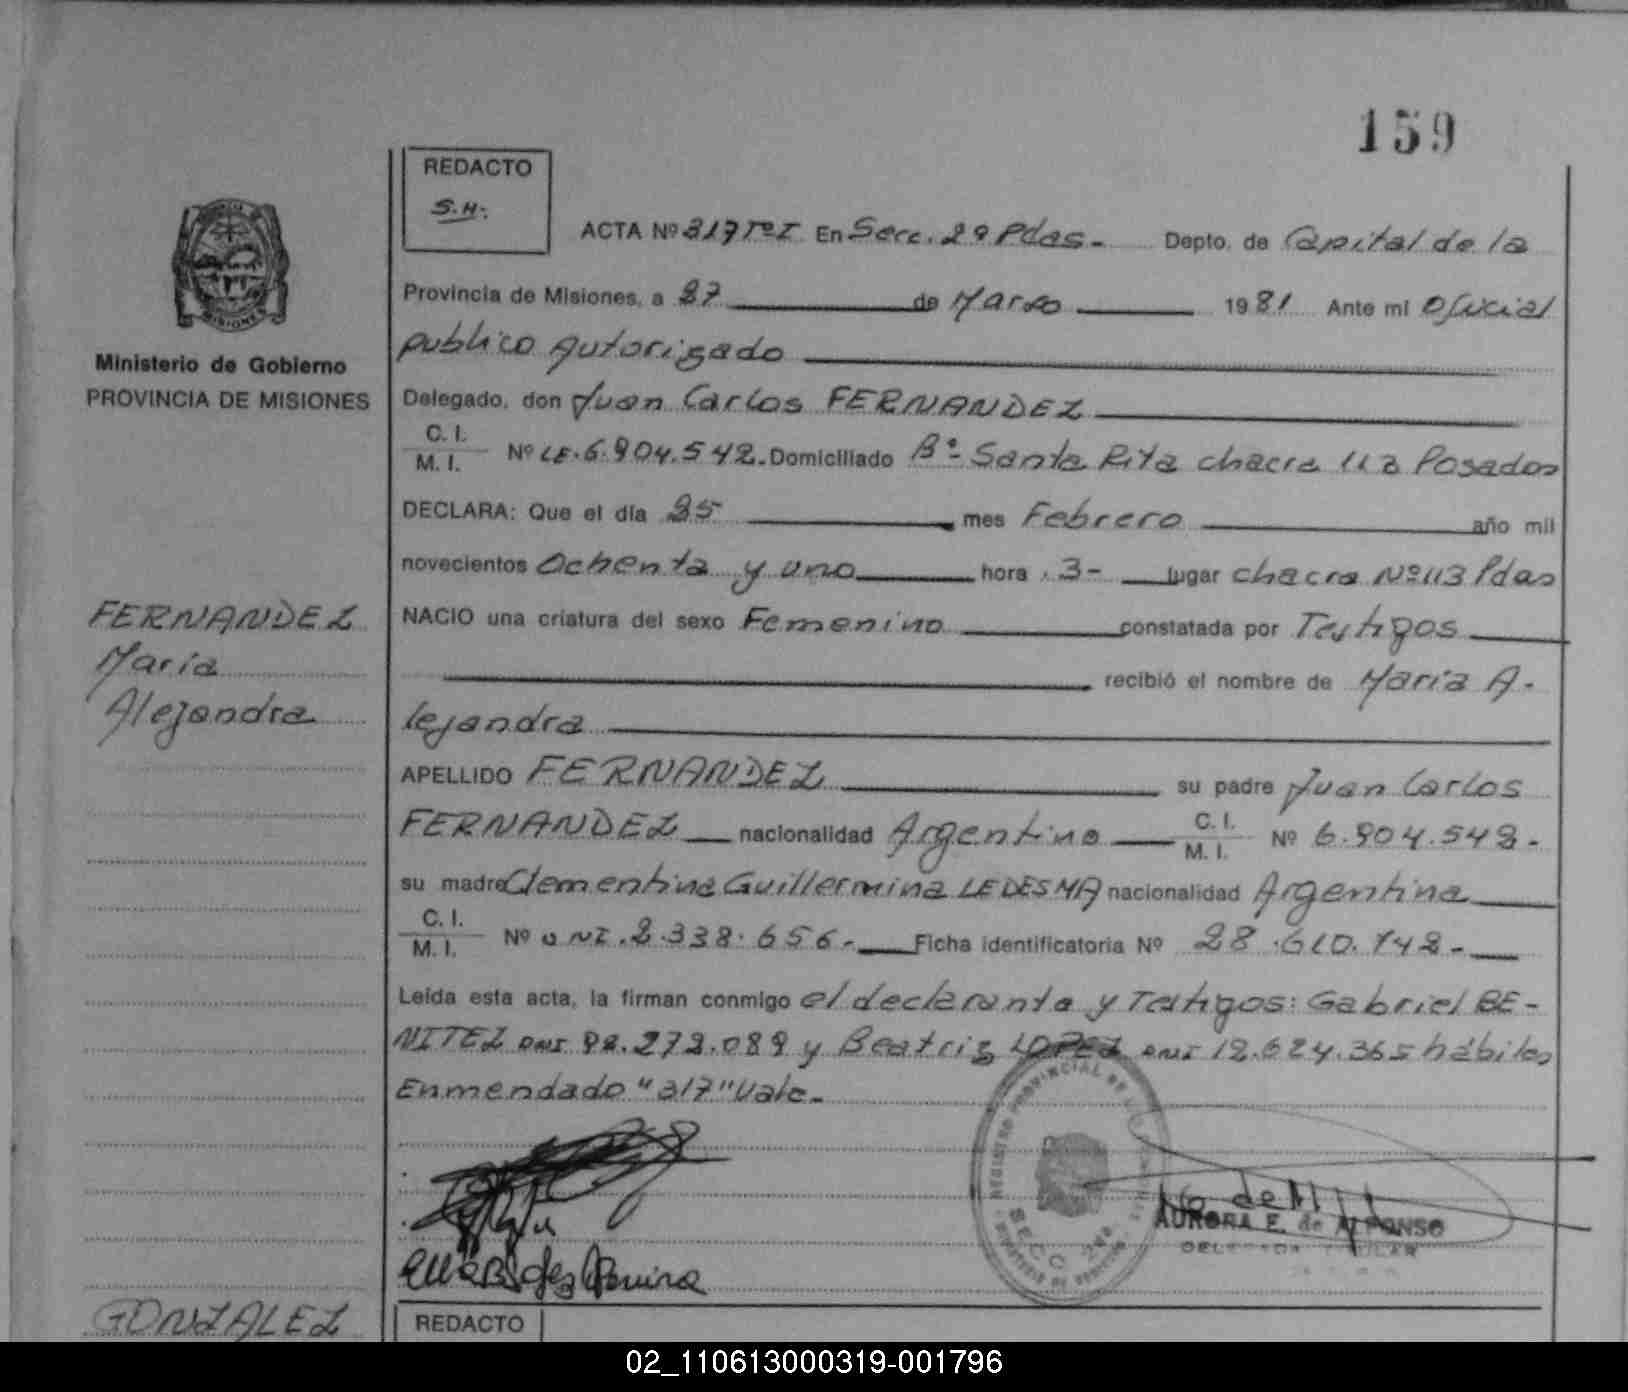 159
REDACTO
S.H.
ACTA Nº 317 Tº I En Secc. 2ª Pdas.- Depto. de Capital de la
Provincia de Misiones, a 27 de Marzo 1981 Ante mi Oficial
publico Autorizado
MISIONES
Ministerio de Gobierno
PROVINCIA DE MISIONES
Delegado, don Juan Carlos FERNANDEZ
C. I.
M. I. Nº LE. 6.804.542.- Domiciliado Bº- Santa Rita chacra 113 Posadas
DECLARA: Que el día 25 mes Febrero año mil
novecientos Ochenta y uno hora 3- lugar chacra Nº 113 Pdas
FERNANDEZ
Maria
Alejandra
NACIO una criatura del sexo Femenino constatada por Testigos
recibió el nombre de Maria A-
lejandra
APELLIDO FERNANDEZ su padre Juan Carlos
FERNANDEZ nacionalidad Argentino C. I.
M. I. Nº 6.804.542-
su madre Clementina Guillermina LEDESMA nacionalidad Argentina
C. I.
M. I. Nº DNI. 2.338.656.- Ficha identificatoria Nº 28.610.742-
Leída esta acta, la firman conmigo el declarante y Testigos: Gabriel BE-
NITEZ DNI 92.272.089 y Beatriz LOPEZ DNI 12.624.365 hábiles
Enmendado "317" Vale-
REGISTRO PROVINCIAL DE
SECC 2ª
AURORA E. de ALFONSO
DELEGADA TITULAR
GONZALEZ
REDACTO
02_110613000319-001796